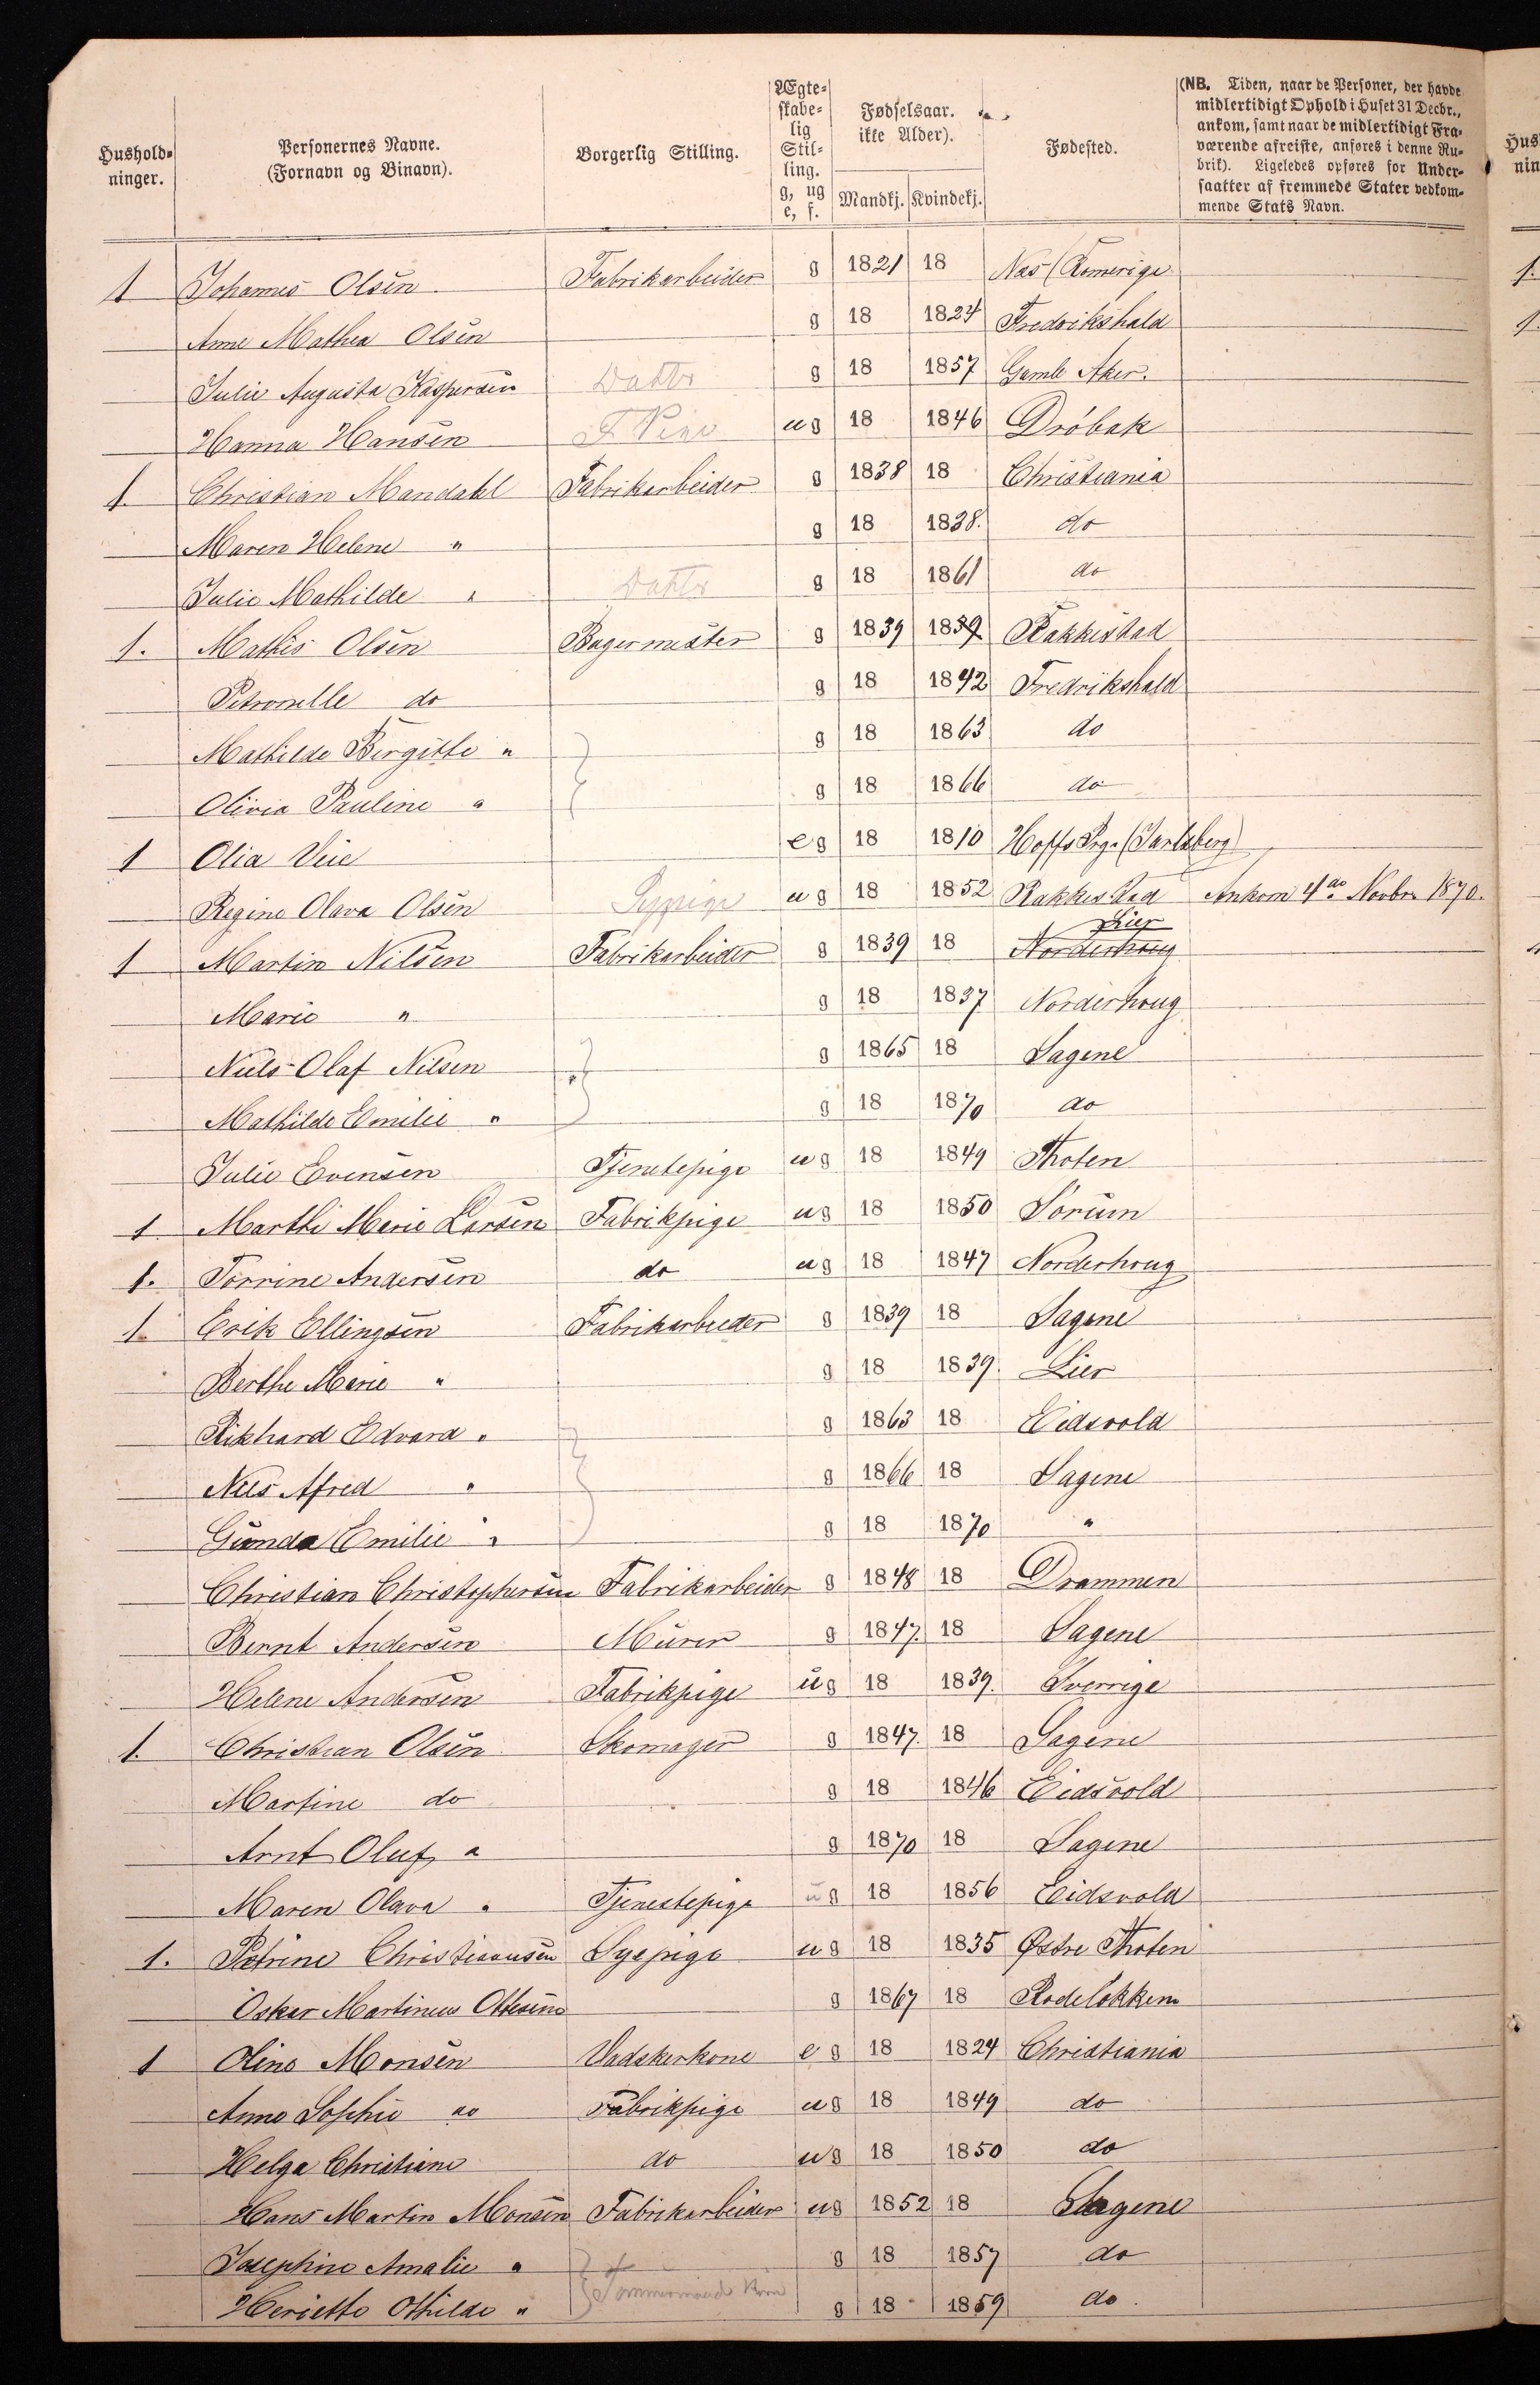 Hushold-ninger. Personernes Navne. (Fornavn og Binavn). Borgerlig Stilling. Ægte-skabe-lig Stil-ling. g, ug e, f. Fødselsaar. ikke Alder). Mandkj. Kvindekj. Fødested. (NB. Tiden, naar de Personer, der havde midlertidigt Ophold i Huset 31 Decbr., ankom, samt naar de midlertidigt Fra-værende afreiste, anføres i denne Ru-brik). Ligeledes opføres for Under-saatter af fremmede Stater vedkom-mende Stats Navn.
1 Johannes Olsen Fabrikarbeider g 1821 18 Næs (Romerige
Anne Mathea Olsen g 18 1824 Fredrikshald
Julie Augusta Kaspersen Datter g 18 1857 Gamle Aker.
Hanna Hansen ug 18 1846 Dróbak
1. Christian Mandahl Fabrikarbeider g 1838 18 Christiania
Maren Helene " g 18 1838. do
Julie Mathilde " Datter g 18 1861 do
1. Mathis Olsen Bagermester g 1839 1839 Rakkestad
Petronelle do g 18 1842 Fredrikshald
Mathilde Birgitte " g 18 1863 do
Olivia Pauline " g 18 1866 do
1 Olia Vuc eg 18 1810 Hoffs Prg. (Jarlsberg)
Regine Olava Olsen Sypige ug 18 1852 Rakkestad Ankom 4de Novbr. 1870.
1 Martin Nilsen Fabrikarbeider g 1839 18 Norderhoug Lier
Marie " g 18 1837 Norderhoug
Niels Olaf Nilsen g 1865 18 Sagene
Mathilde Emilie " g 18 1870 do
Julie Evensen Tjenetepige ug 18 1849 Thoten
1 Marthe Marie Larsen Fabrikpige ug 18 1850 Sorum
1. Torrine Andersen do ug 18 1847 Norderhoug
1. Erik Ellingsen Fabrikarbeider g 1839 18 Sagene
Berthe Marie " g 18 1839. Lier
Rikhard Edvard " g 1863 18 Eidsvold
Nils Afred " g 1866 18 Sagene
Gunda Emilie " g 18 1870 "
Christian Christophersen Fabrikarbeider g 1848 18 Drammen
Bernt Andersen Murer g 1847. 18 Sagene
Helene Andersen Fabrikpige ug 18 1839. Sverrige
1. Christian Olsen Skomager g 1847. 18 Sagene
Martine do g 18 1846 Eidsvold
Arnt Oluf " g 1870 18 Sagene
Maren Olava " Tjenestepige ug 18 1856 Eidsvold
1. Petrine Christiansen Sypige ug 18 1835 Østre Thoten
Oskar Martineus Ottesen g 1867 18 Rodeløkken
1 Oline Monsen Vadskerkone eg 18 1824 Christiania
Anne Sophie do Fabrikpige ug 18 1849 do
Helga Christiane do ug 18 1850 do
Hans Martin Monsen Fabrikarbeider ug 1852 18 Sagene
Josephine Amalie " g 18 1857 do
Heriette Othilde " Tømmermand g 18 1859 do.